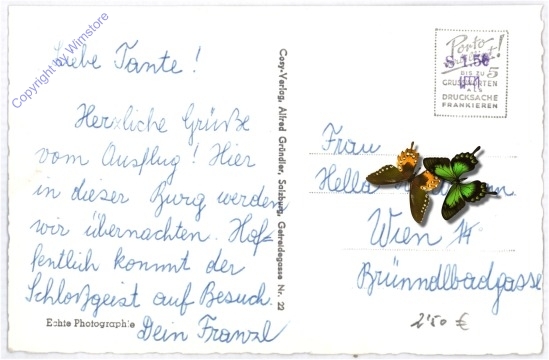 Copyright by Wimstore
Liebe Tante!
Herzliche Grüße
vom Ausflug! Hier
in dieser Burg werden
wir übernachten. Hof-
fentlich kommt der
Schloßgeist auf Besuch.
Dein Franzl
Echte Photographie
Cosy-Verlag, Alfred Gründler, Salzburg, Getreidegasse Nr. 22
Porto
S 1.50
BIS ZU 5
GRUSSWORTEN
ALS
DRUCKSACHE
FRANKIEREN
Frau
Hella
Wien 14
Brünndlbadgasse
2'50 €